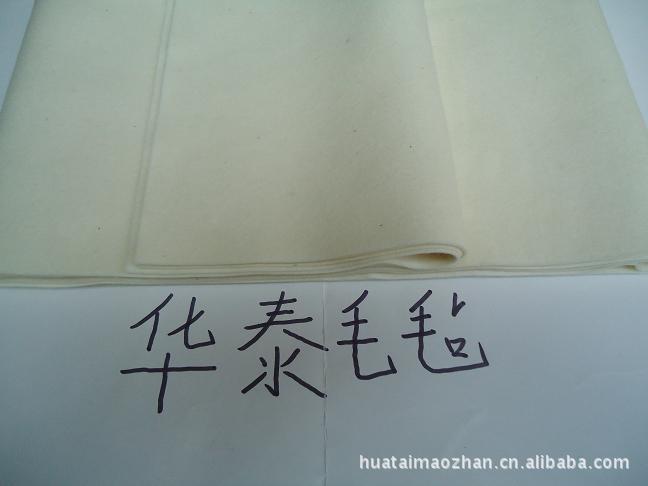 华泰毛毡
huataimaozhan.cn.alibaba.com